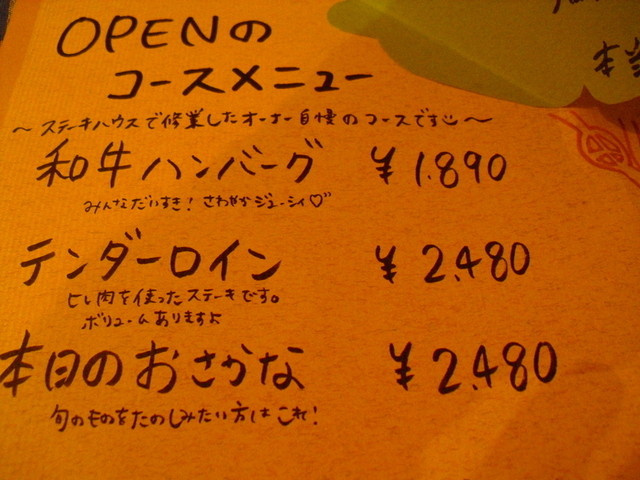 OPENの
コースメニュー
～ステーキハウスで修業したオーナー自慢のコースです～
和牛ハンバーグ ¥1.890
みんなだいすき！さわやかジューシィ♡
テンダーロイン ¥2.480
ヒレ肉を使ったステーキです。
ボリュームありますよ
本日のおさかな ¥2.480
旬のものをたのしみたい方はこれ！